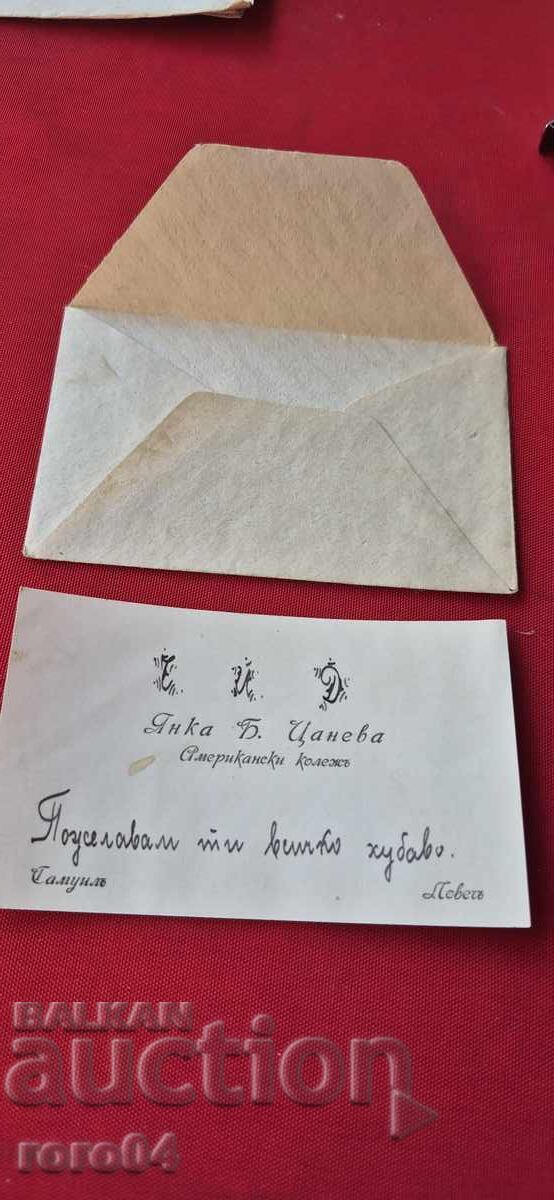 Ч И Д
Янка Б. Цанева
Американски колежъ
Пожелавам ти всичко хубаво.
Самуилъ
Ловечъ
BALKAN
auction
roro04